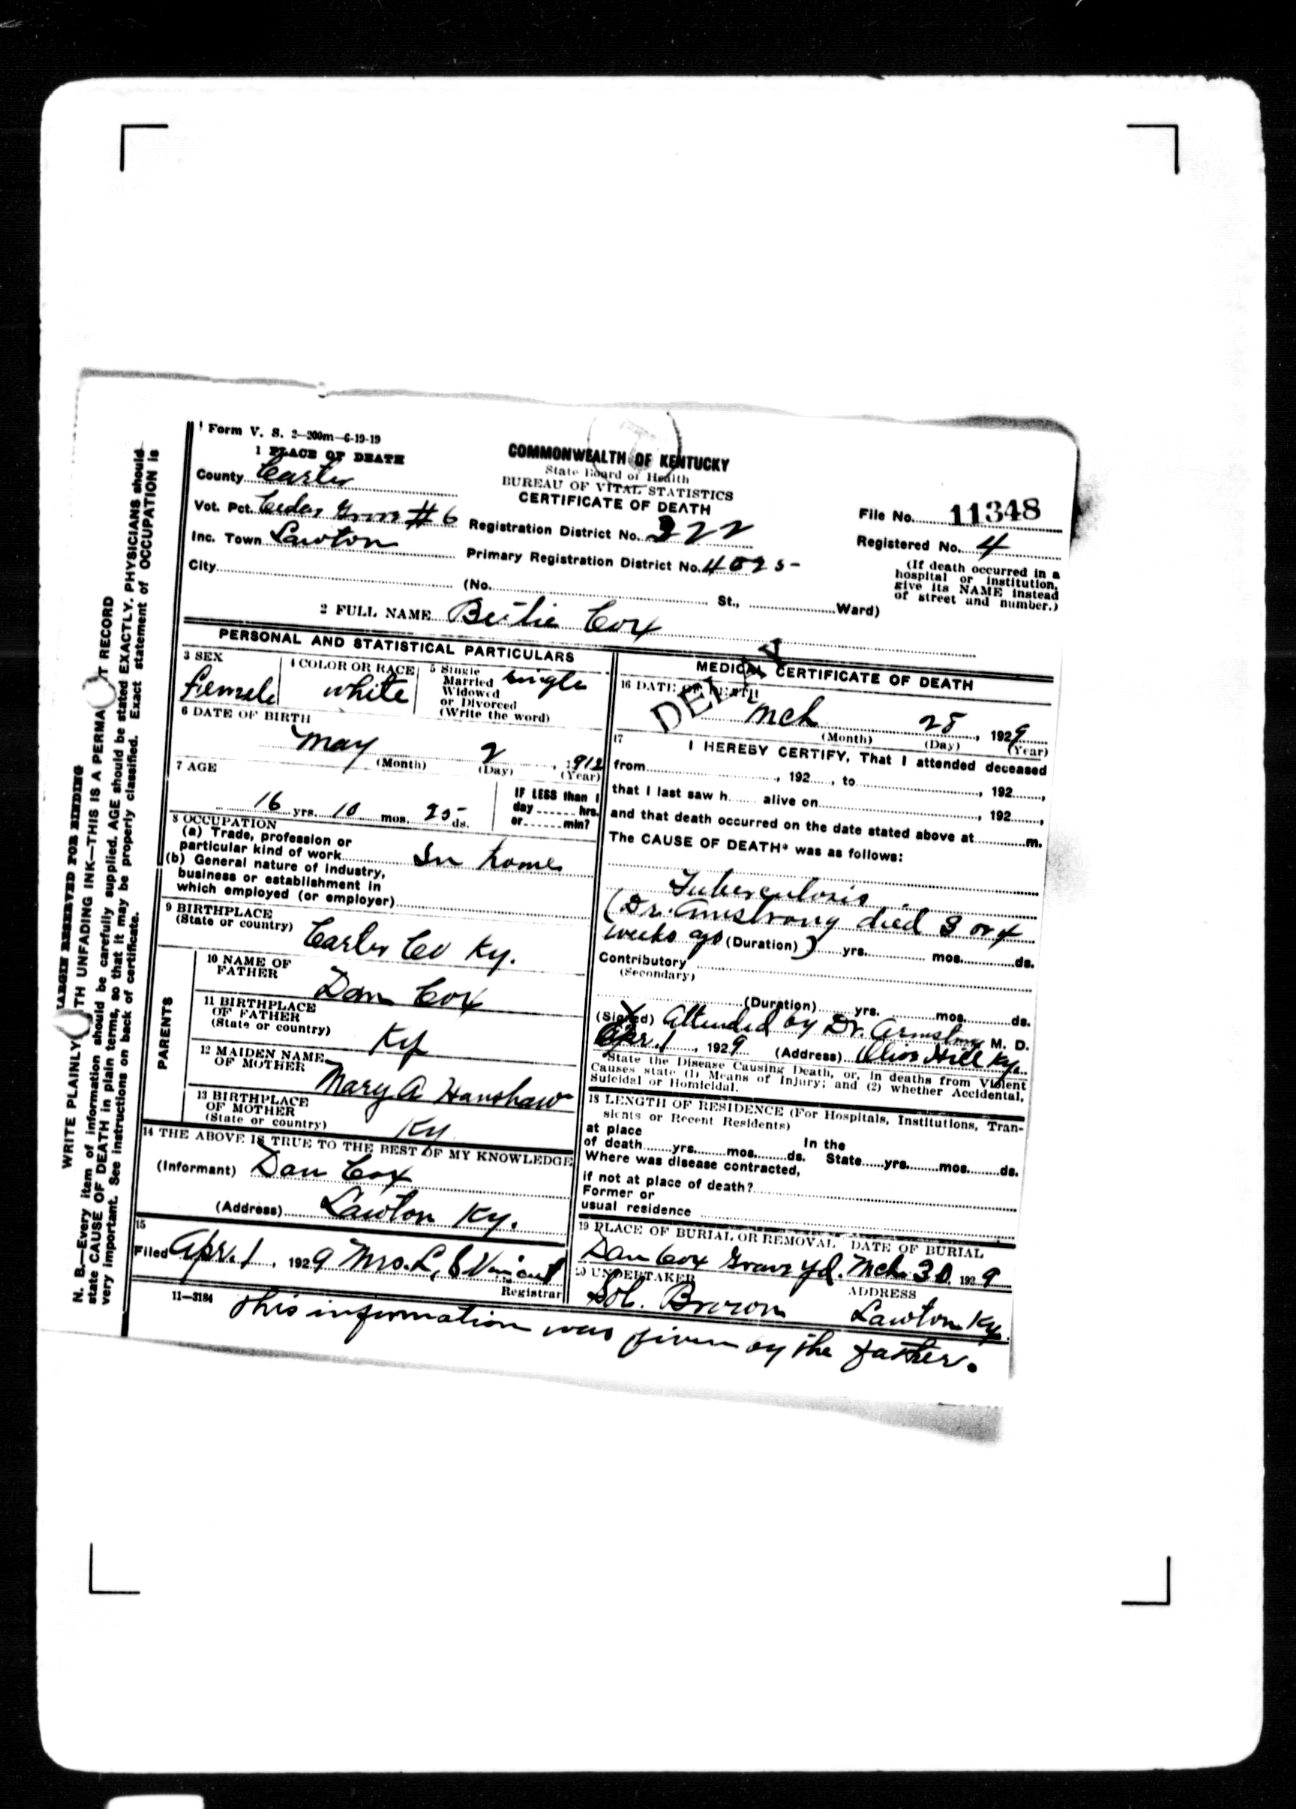 Form V. S. 2—200m—6-19-19
1 PLACE OF DEATH
County Carter
Vot. Pct. Cedar Grove #6
Inc. Town Lawton
City
COMMONWEALTH OF KENTUCKY
State Board of Health
BUREAU OF VITAL STATISTICS
CERTIFICATE OF DEATH
Registration District No. 222
Primary Registration District No. 4025
(No. St., Ward)
File No. 11348
Registered No. 4
(If death occurred in a
hospital or institution,
give its NAME instead
of street and number.)
2 FULL NAME Cox
PERSONAL AND STATISTICAL PARTICULARS
3 SEX
female
4 COLOR OR RACE
white
5 Single
Married
Widowed
or Divorced
(Write the word)
single
6 DATE OF BIRTH
May 2, 1912
(Month) (Day) (Year)
7 AGE
16 yrs. 10 mos. 25 ds.
IF LESS than 1
day hrs.
or min?
8 OCCUPATION
(a) Trade, profession or
particular kind of work In home
(b) General nature of industry,
business or establishment in
which employed (or employer)
9 BIRTHPLACE
(State or country) Carter Co Ky.
PARENTS
10 NAME OF
FATHER Dan Cox
11 BIRTHPLACE
OF FATHER
(State or country) Ky
12 MAIDEN NAME
OF MOTHER Mary A Hanshaw
13 BIRTHPLACE
OF MOTHER
(State or country) Ky
14 THE ABOVE IS TRUE TO THE BEST OF MY KNOWLEDGE
(Informant) Dan Cox
(Address) Lawton Ky.
15
Filed Apr. 1, 1929 Mrs. L. S Vincent
Registrar
11—3184
MEDICAL CERTIFICATE OF DEATH
DELAY
16 DATE OF DEATH
Mch 28, 1929
(Month) (Day) (Year)
17 I HEREBY CERTIFY, That I attended deceased
from , 192 , to , 192 ,
that I last saw h alive on , 192 ,
and that death occurred on the date stated above at m.
The CAUSE OF DEATH* was as follows:
Tuberculosis
(Dr. Armstrong died 3 or 4
weeks ago (Duration) ) yrs. mos. ds.
Contributory
(Secondary)
(Duration) yrs. mos. ds.
(Signed) Attended by Dr. Armstrong M. D.
Apr. 1, 1929 (Address) Olive Hill Ky.
*State the Disease Causing Death, or, in deaths from Violent
Causes state (1) Means of Injury; and (2) whether Accidental,
Suicidal or Homicidal.
18 LENGTH OF RESIDENCE (For Hospitals, Institutions, Tran-
sients or Recent Residents)
at place In the
of death yrs. mos. ds. State yrs. mos. ds.
Where was disease contracted,
if not at place of death?
Former or
usual residence
19 PLACE OF BURIAL OR REMOVAL DATE OF BURIAL
Dan Cox Grave yd. Mch 30, 1929
20 UNDERTAKER ADDRESS
Sol. Brown Lawton Ky.
This information was given by the father.
MARGIN RESERVED FOR BINDING
WRITE PLAINLY WITH UNFADING INK—THIS IS A PERMANENT RECORD
N. B.—Every item of information should be carefully supplied. AGE should be stated EXACTLY. PHYSICIANS should
state CAUSE OF DEATH in plain terms, so that it may be properly classified. Exact statement of OCCUPATION is
very important. See instructions on back of certificate.